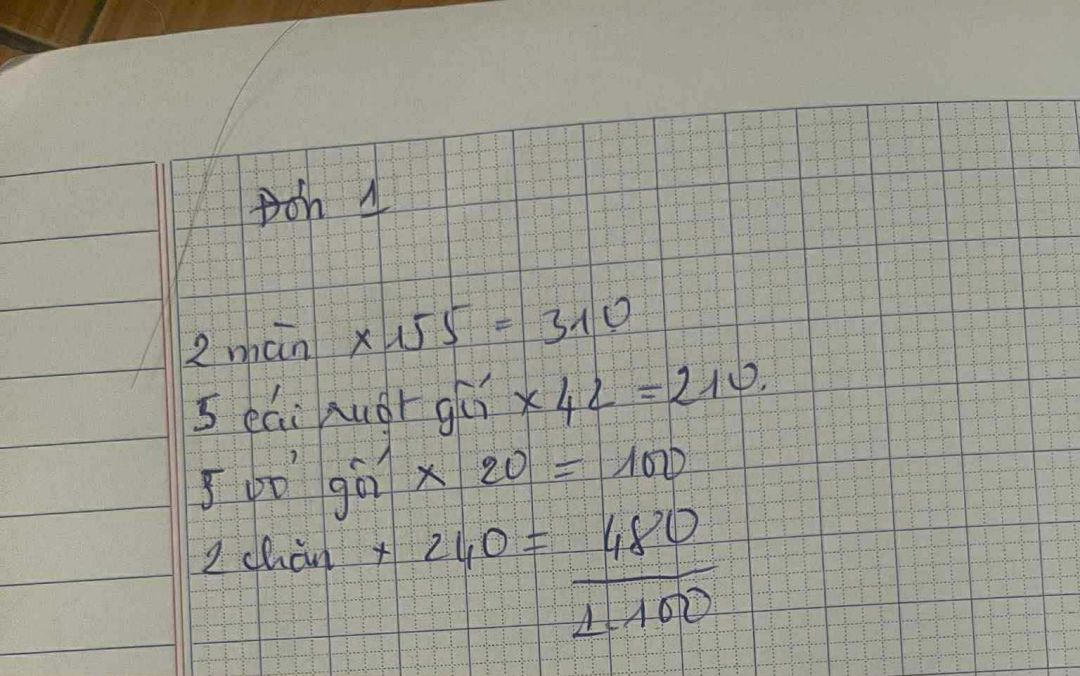 Đơn 1
2 màn × 155 = 310
5 cái ruột gối × 42 = 210.
5 vỏ gối × 20 = 100
2 chăn × 240 = 480
1.100